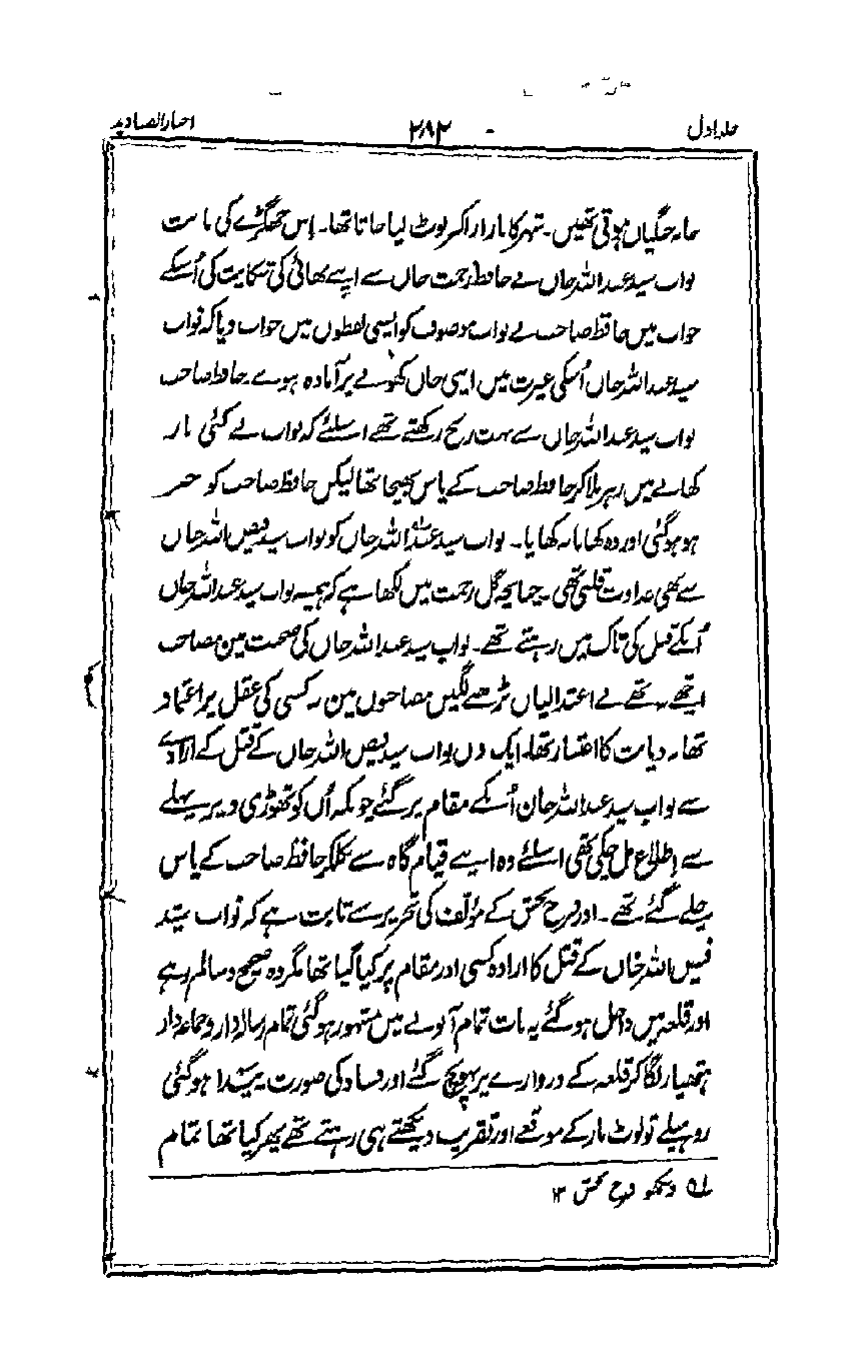 جلد اول ۲۸۲ اخبارالصنادید
خانہ جنگیاں ہوتی تھیں۔ شہر کا بازار اکثر لوٹ لیا جاتا تھا۔ اِس جھگڑے کی بابت
نواب سید عبداللہ خاں نے حافظ رحمت خاں سے اپنے بھائی کی شکایت کی اُسکے
جواب میں حافظ صاحب نے نواب موصوف کو ایسی لفظوں میں جواب دیا کہ نواب
سید عبداللہ خاں اُسکی غیرت میں اپنی جاں کھونے پر آمادہ ہوے حافظ صاحب
نواب سید عبداللہ خاں سے بہت رنج رکھتے تھے اسلئے کہ نواب نے کئی بار
کھانے میں زہر ملا کر حافظ صاحب کے پاس بھیجا تھا لیکن حافظ صاحب کو خبر
ہو ہو گئی اور وہ کھانا نہ کھایا۔ نواب سید عبداللہ خاں کو نواب سید فیض اللہ خاں
سے بھی عداوت قلبی تھی۔ چنانچہ گل رحمت میں لکھا ہے کہ ہمیشہ نواب سید عبداللہ خاں
اُنکے قتل کی تاک میں رہتے تھے۔ نواب سید عبداللہ خاں کی صحبت مین مصاحب
اچھے نہ تھے بے اعتدالیاں بڑھنے لگیں مصاحبوں مین نہ کسی کی عقل پر اعتماد
تھا نہ دیانت کا اعتبار تھا۔ ایک دن نواب سید فیض اللہ خاں کے قتل کے ارادے
سے نواب سید عبداللہ خان اُنکے مقام پر گئے چونکہ اُن کو تھوڑی دیر پہلے
سے اطلاع مل چکی تھی اسلئے وہ اپنے قیام گاہ سے نکلکر حافظ صاحب کے پاس
چلے گئے تھے۔ اور فرح بخش کے مؤلف کی تحریر سے ثابت ہے کہ نواب سید
فیض اللہ خاں کے قتل کا ارادہ کسی اور مقام پر کیا گیا تھا مگر وہ صحیح و سالم رہے
اور قلعہ میں داخل ہو گئے یہ بات تمام آنولے میں مشہور ہو گئی تمام رسالدار و جماعدار
ہتھیار لگا کر قلعہ کے دروازے پر پہونچ گئے اور فساد کی صورت پیدا ہو گئی
روہیلے تو لوٹ مار کے موقعے اور تقریب دیکھتے ہی رہتے تھے پھر کیا تھا تمام
لہ دیکھو فرح بخش ۱۲